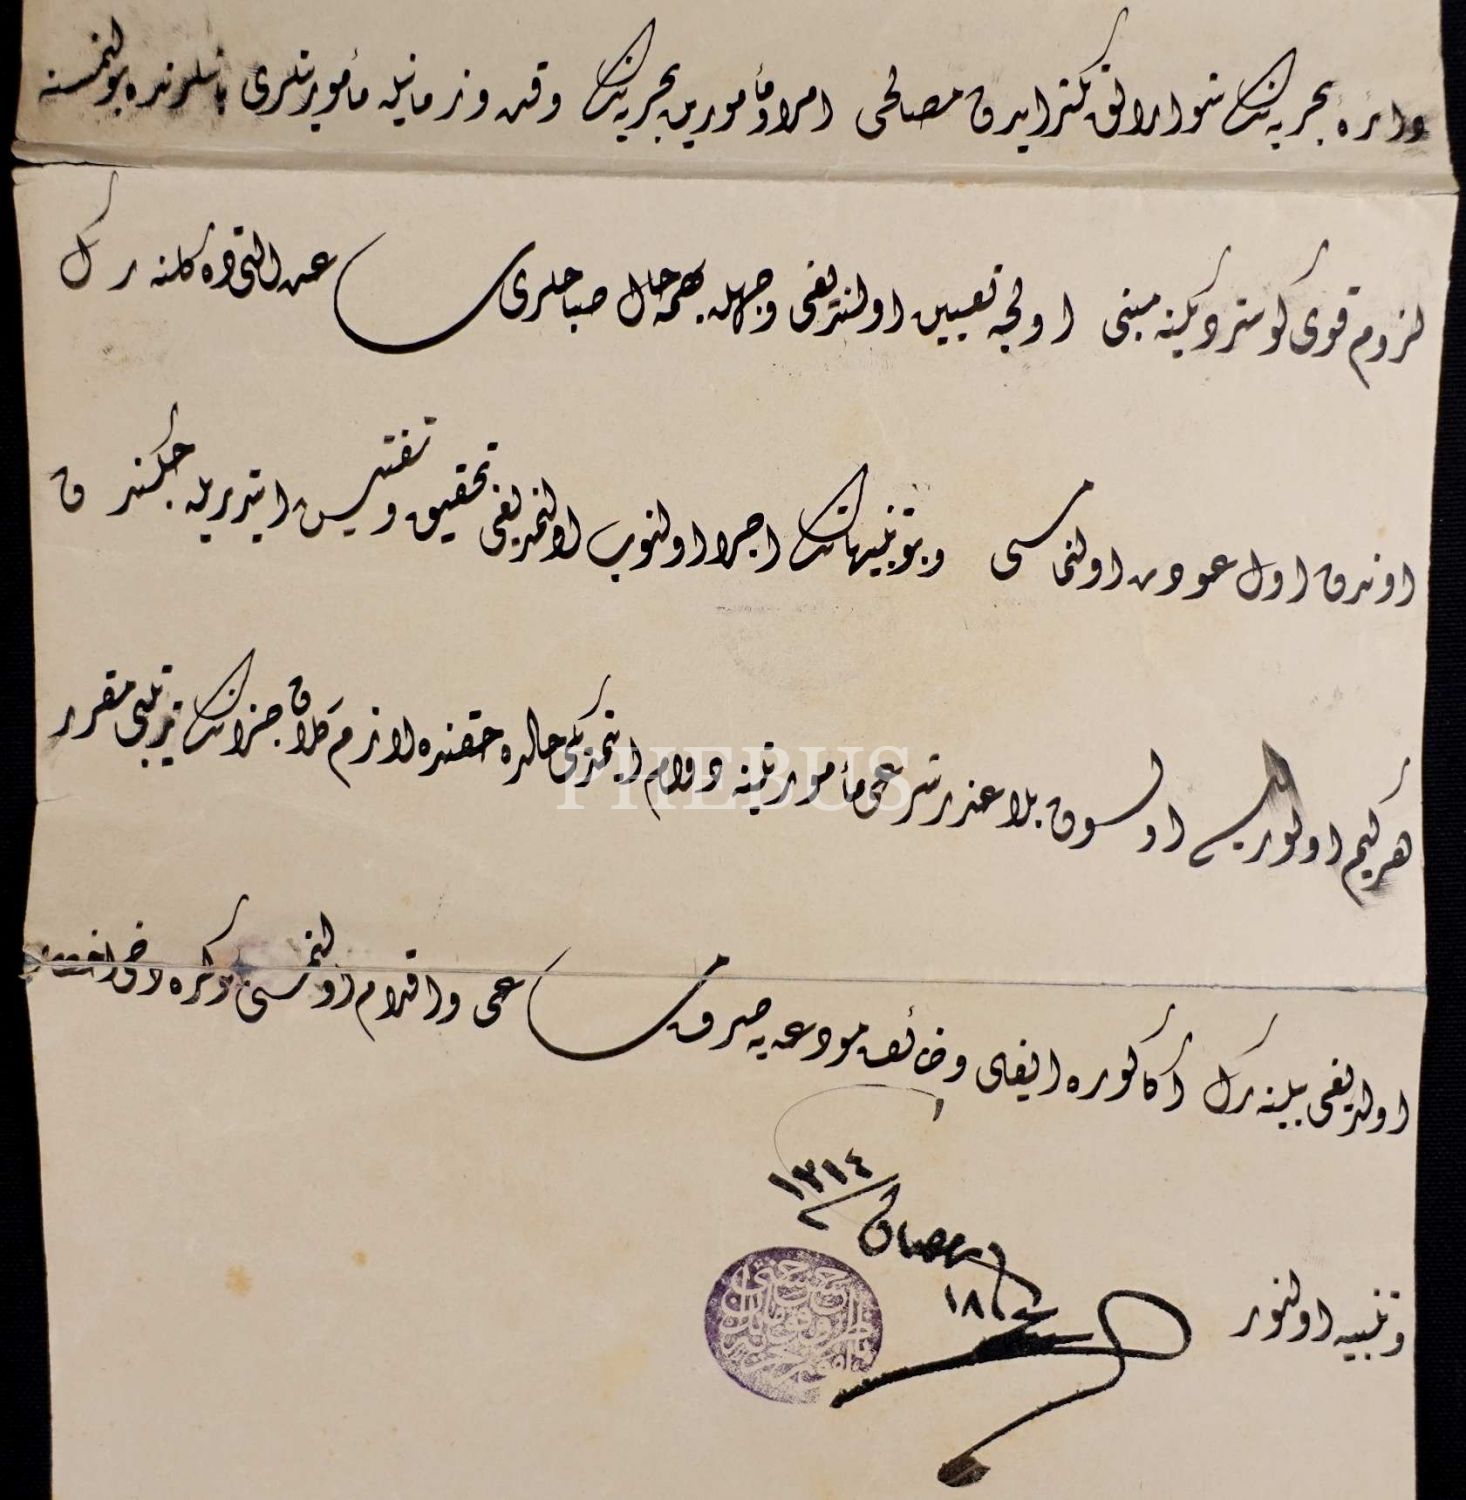 دائرهٔ بحریه‌نك شو ارالق تكثر ایدن مصالحی امرا و مأمورین بحریه‌نك وقت و زمانیله مأموریتلری باشلرنده بولنمسنه
لزوم قوی كوستردیكنه مبنی اولجه تعیین اولندیغی وجهله بهمه‌حال صباحلری ساعت التیده كلنه‌رك
اوندن اول عودت اولنمامسی و بو تنبیهاتك اجرا اولنوب اولنمدیغی تحقیق و تفتیش ایتدیریله‌جكندن
هر كیم اولور ایسه اولسون بلا عذر شرعی مأموریتنه دوام ایتمدیكی حالده حقنده لازم كلان جزانك ترتیبی مقرر
اولدیغی بیلنه‌رك آكا كوره ایفای وظائف مودعه‌یه صرف سعی و اقدام اولنمسی بو كره دخی
تنبیه اولنور
١٨ رمضان ١٣١٤
PHEBUS